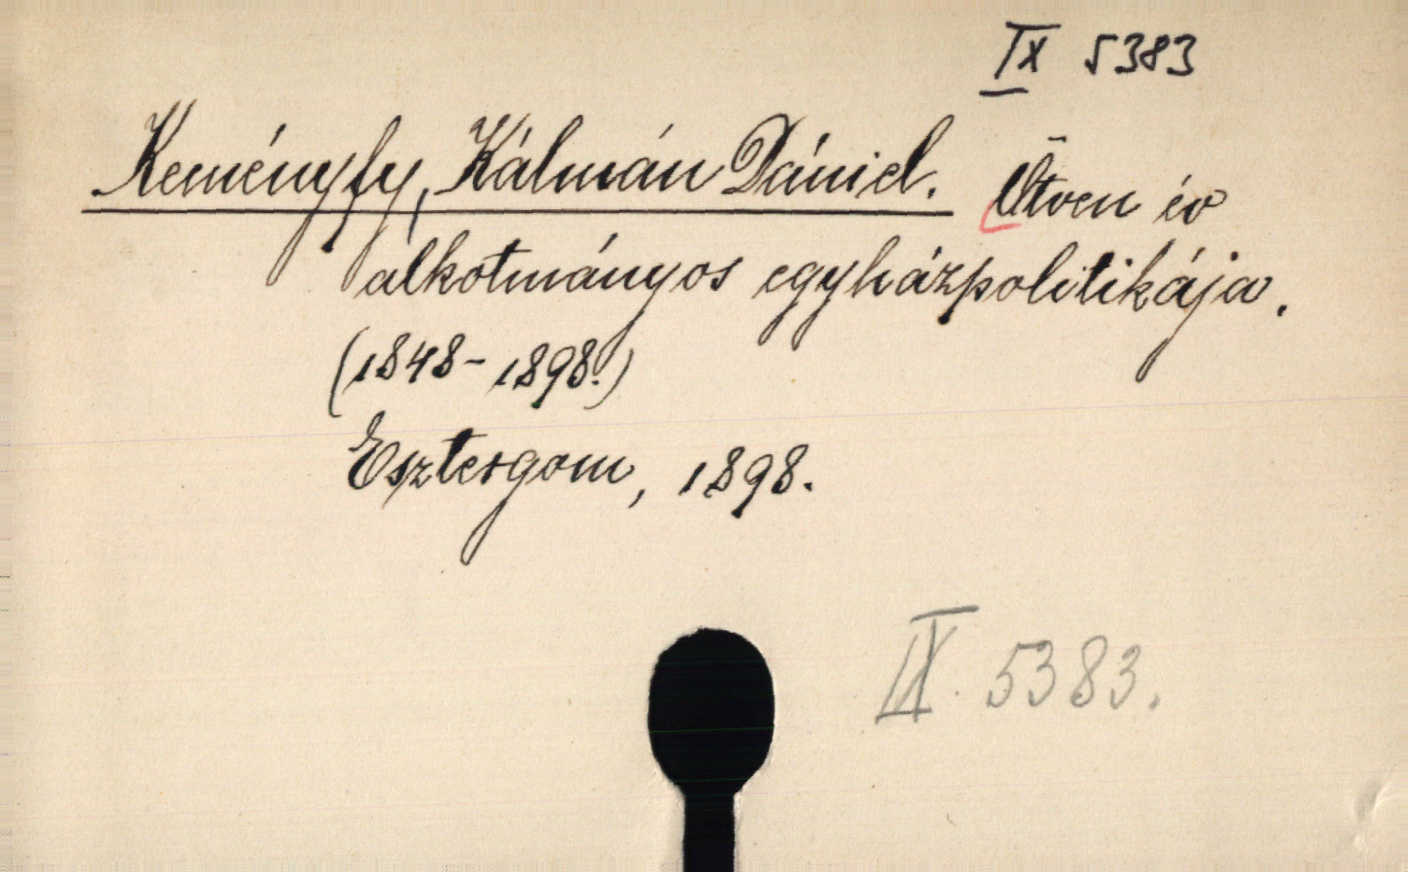 IX 5383
Keményfy, Kálmán Dániel. Ötven év
alkotmányos egyházpolitikája.
(1848-1898.)
Esztergom, 1898.
IX. 5383.